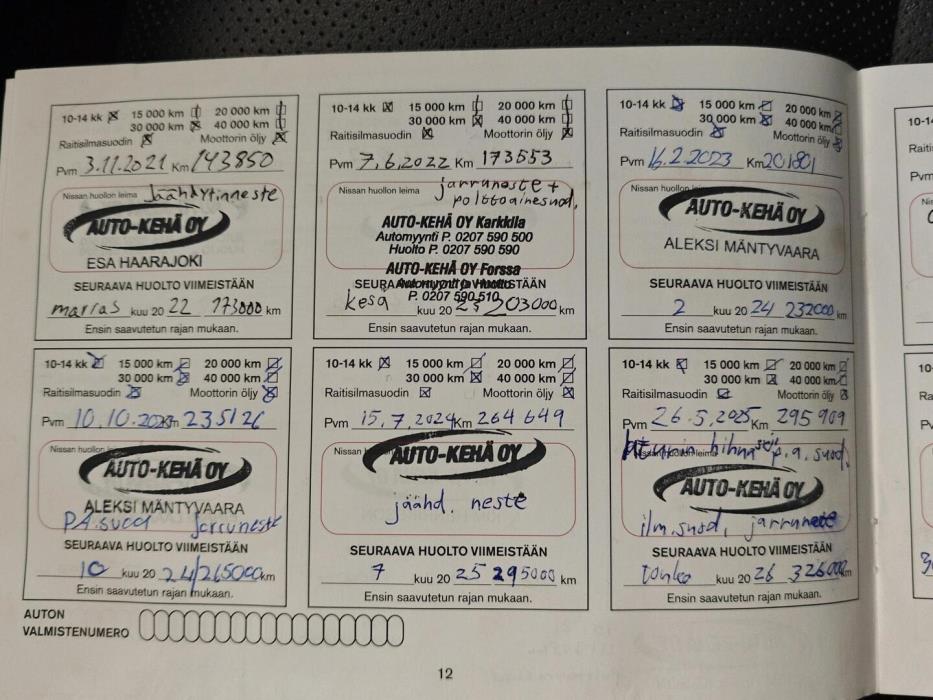 10-14 kk 15 000 km 20 000 km
30 000 km 40 000 km
Raitisilmasuodin Moottorin öljy
Pvm 3.11.2021 Km 143850
Nissan huollon leima Jäähdytinneste
AUTO-KEHÄ OY
ESA HAARAJOKI
SEURAAVA HUOLTO VIIMEISTÄÄN
marras kuu 20 22 173000 km
Ensin saavutetun rajan mukaan.
10-14 kk 15 000 km 20 000 km
30 000 km 40 000 km
Raitisilmasuodin Moottorin öljy
Pvm 7.6.2022 Km 173553
Nissan huollon leima jarruneste +
polttoainesuod.
AUTO-KEHÄ OY Karkkila
Automyynti P. 0207 590 500
Huolto P. 0207 590 590
AUTO-KEHÄ OY Forssa
Automyynti ja Huolto
SEURAAVA HUOLTO VIIMEISTÄÄN
P. 0207 590 510
kesä kuu 20 23 203000 km
Ensin saavutetun rajan mukaan.
10-14 kk 15 000 km 20 000 km
30 000 km 40 000 km
Raitisilmasuodin Moottorin öljy
Pvm 16.2.2023 Km 201801
Nissan huollon
AUTO-KEHÄ OY
ALEKSI MÄNTYVAARA
SEURAAVA HUOLTO VIIMEISTÄÄN
2 kuu 20 24 232000 km
Ensin saavutetun rajan mukaan.
10-14 kk 15 000 km 20 000 km
30 000 km 40 000 km
Raitisilmasuodin Moottorin öljy
Pvm 10.10.2023 Km 235126
Nissan huollon
AUTO-KEHÄ OY
ALEKSI MÄNTYVAARA
PA.suod Jarruneste
SEURAAVA HUOLTO VIIMEISTÄÄN
10 kuu 20 24/265000 km
Ensin saavutetun rajan mukaan.
10-14 kk 15 000 km 20 000 km
30 000 km 40 000 km
Raitisilmasuodin Moottorin öljy
Pvm 15.7.2024 Km 264 649
Nissan
AUTO-KEHÄ OY
jäähd. neste
SEURAAVA HUOLTO VIIMEISTÄÄN
7 kuu 20 25 295000 km
Ensin saavutetun rajan mukaan.
10-14 kk 15 000 km 20 000 km
30 000 km 40 000 km
Raitisilmasuodin Moottorin öljy
Pvm 26.5.2025 Km 295 909
hihna p.a. suod,
Nissan huollon leima
AUTO-KEHÄ OY
ilm.suod, jarruneste
SEURAAVA HUOLTO VIIMEISTÄÄN
touko kuu 20 26 326000 km
Ensin saavutetun rajan mukaan.
AUTON
VALMISTENUMERO
12